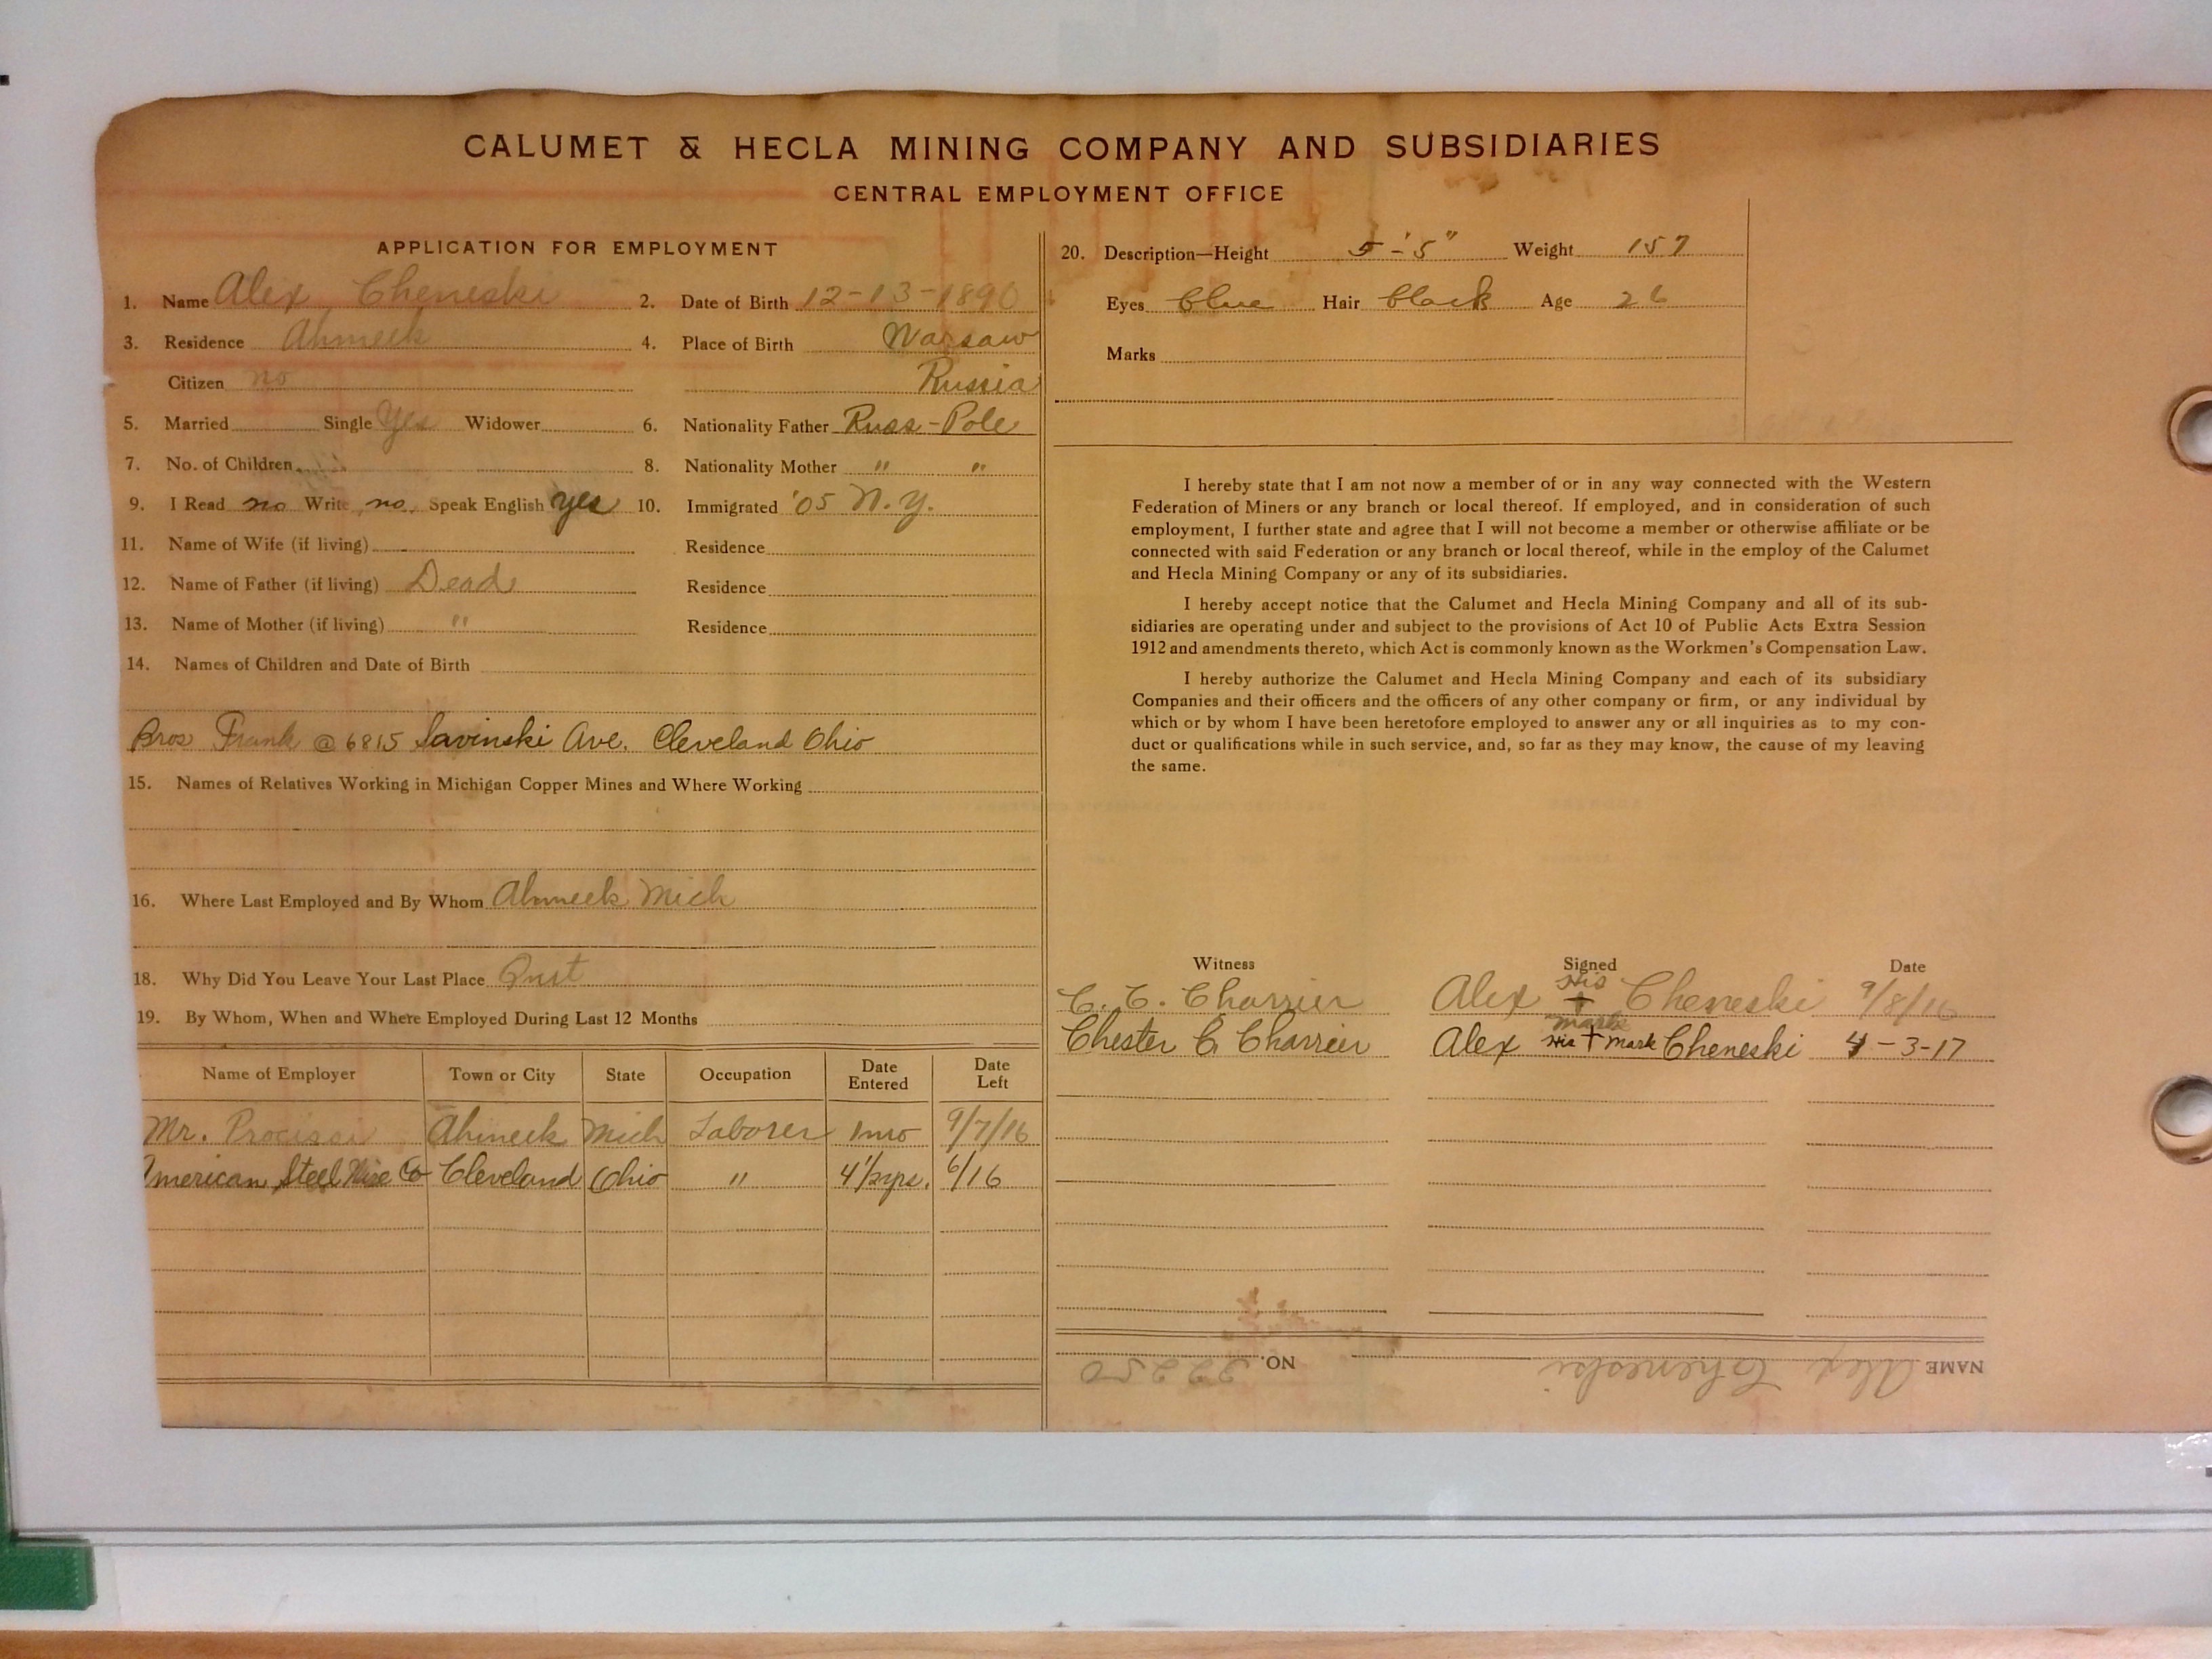 CALUMET & HECLA MINING COMPANY AND SUBSIDIARIES
CENTRAL EMPLOYMENT OFFICE
APPLICATION FOR EMPLOYMENT
1. Name Alex Cheneski 2. Date of Birth 12-13-1890
3. Residence Ahmeek 4. Place of Birth Warsaw
Citizen no Russia
5. Married Single Yes Widower 6. Nationality Father Russ-Pole
7. No. of Children 8. Nationality Mother " "
9. I Read no Write no Speak English yes 10. Immigrated '05 N.Y.
11. Name of Wife (if living) Residence
12. Name of Father (if living) Dead Residence
13. Name of Mother (if living) " Residence
14. Names of Children and Date of Birth
Bros Frank @ 6815 Lavinski Ave. Cleveland Ohio
15. Names of Relatives Working in Michigan Copper Mines and Where Working
16. Where Last Employed and By Whom Ahmeek Mich
18. Why Did You Leave Your Last Place Quit
19. By Whom, When and Where Employed During Last 12 Months
Name of Employer Town or City State Occupation Date Entered Date Left
Mr. Ahmeek Mich Laborer 1 mo 9/7/16
American Steel Wire Co Cleveland Ohio " 4 1/2 yrs. 6/16
20. Description—Height 5-'5" Weight 157
Eyes blue Hair black Age 26
Marks
I hereby state that I am not now a member of or in any way connected with the Western
Federation of Miners or any branch or local thereof. If employed, and in consideration of such
employment, I further state and agree that I will not become a member or otherwise affiliate or be
connected with said Federation or any branch or local thereof, while in the employ of the Calumet
and Hecla Mining Company or any of its subsidiaries.
I hereby accept notice that the Calumet and Hecla Mining Company and all of its sub-
sidiaries are operating under and subject to the provisions of Act 10 of Public Acts Extra Session
1912 and amendments thereto, which Act is commonly known as the Workmen's Compensation Law.
I hereby authorize the Calumet and Hecla Mining Company and each of its subsidiary
Companies and their officers and the officers of any other company or firm, or any individual by
which or by whom I have been heretofore employed to answer any or all inquiries as to my con-
duct or qualifications while in such service, and, so far as they may know, the cause of my leaving
the same.
Witness Signed Date
C. C. Charrier Alex His + mark Cheneski 9/8/16
Chester C. Charrier Alex His + mark Cheneski 4-3-17
NAME Alex Cheneski NO. 22250